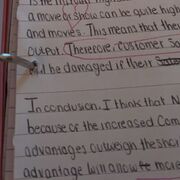 a movie or show can be quite high
and movies. This means that the
output. Therefore, Customer Sa
be damaged if their
In conclusion, I think that N
because of the increased Com
advantages outweigh the sho
advantage will allow to more